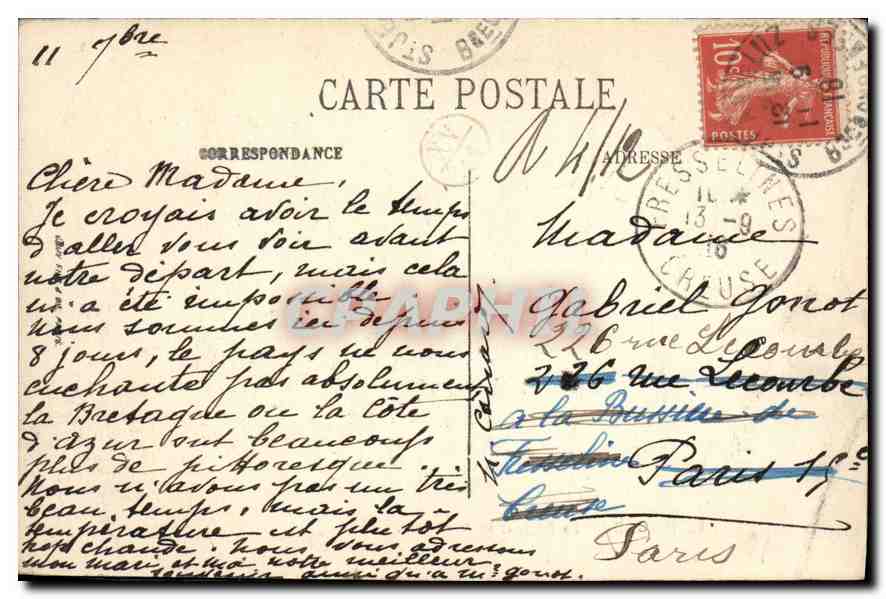 11 7bre
CARTE POSTALE
CORRESPONDANCE
ADRESSE
RÉPUBLIQUE FRANÇAISE
10c
POSTES
FRESSELINES
13 - 9
16
CREUSE
Chère Madame,
Je croyais avoir le temps
d'aller vous voir avant
notre départ, mais cela
m'a été impossible.
Nous sommes ici depuis
8 jours, le pays ne nous
enchante pas absolument
la Bretagne ou la Côte
d'azur ont beaucoup
plus de pittoresque.
Nous n'avons pas un très
beau temps, mais la
température est plutôt
chaude. Nous vous adressons
mon mari et moi notre meilleur
souvenir ainsi qu'à Mr Gonot.
Madame
Gabriel Gonot
226 rue Lecourbe
226 rue Lecourbe
à la Bussière de
Fresseline
Creuse
Paris 15e
Paris
CPAPHIL